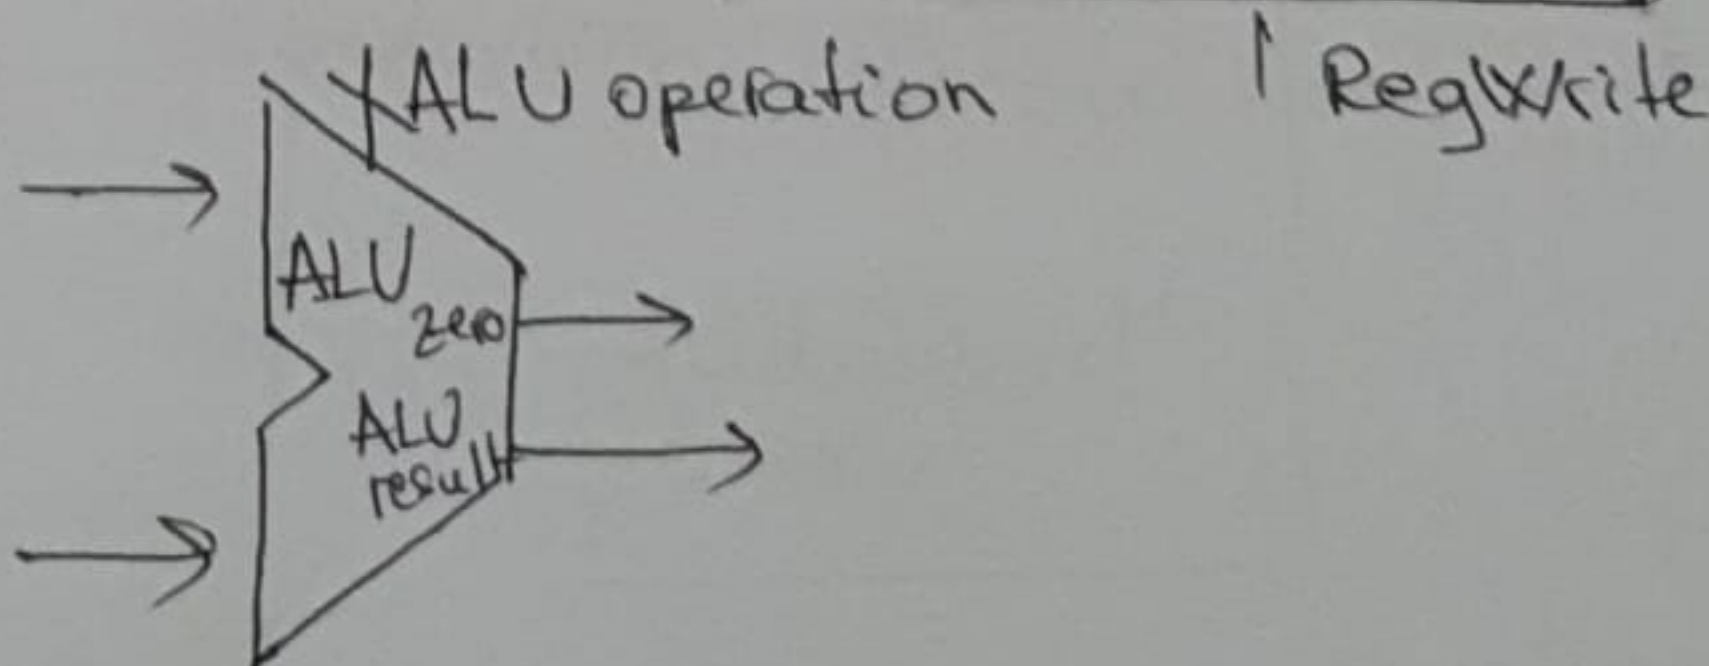 ALU operation
RegWrite
ALU
zero
ALU
result